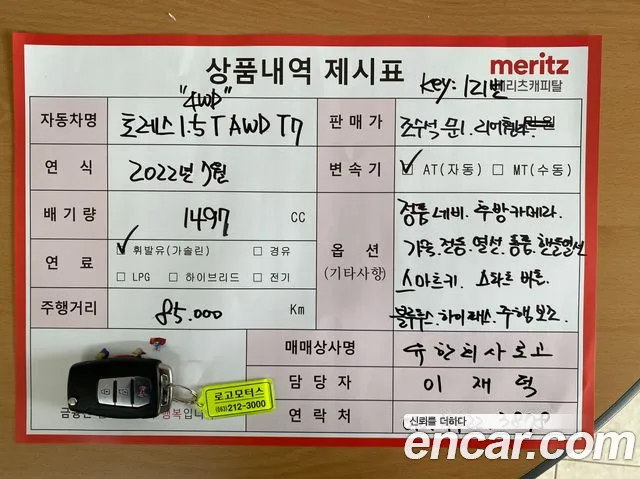 상품내역 제시표
meritz
메리츠캐피탈
key: 121번
"4WD"
자동차명 토레스 1.5T AWD T7
판매가 조수석 문1. 리어휀다 만원
연식 2022년 7월
변속기 ☑ AT(자동) □ MT(수동)
배기량 1497 CC
연료 ☑ 휘발유(가솔린) □ 경유
□ LPG □ 하이브리드 □ 전기
옵션
(기타사항)
정품네비. 후방카메라.
가죽. 전동. 열선. 통풍. 핸들열선
스마트키. 스타트 버튼.
블루투스. 하이패스. 주행보조
주행거리 85.000 Km
매매상사명 유한회사로고
담당자 이재덕
연락처
행복입니
로고모터스
(063)212-3000
신뢰를 더하다
encar.com